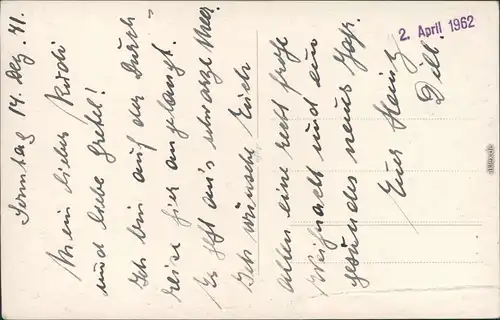 Sonntag 14. Dez. 41.
Mein lieber Rudi
und liebe Gretel!
Ich bin auf der Durch-
reise hier angelangt.
Es geht an's schwarze Meer.
Ich wünsche Euch
allen eine recht frohe
Weihnacht und ein
gesundes neues Jahr.
Euer Heinz
2. April 1962